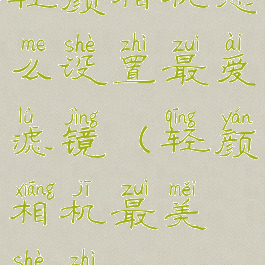 me shè zhì zuì ài
么设置最爱
lǜ jìng qīng yán
滤镜(轻颜
xiāng jī zuì měi
相机最美
shè zhì